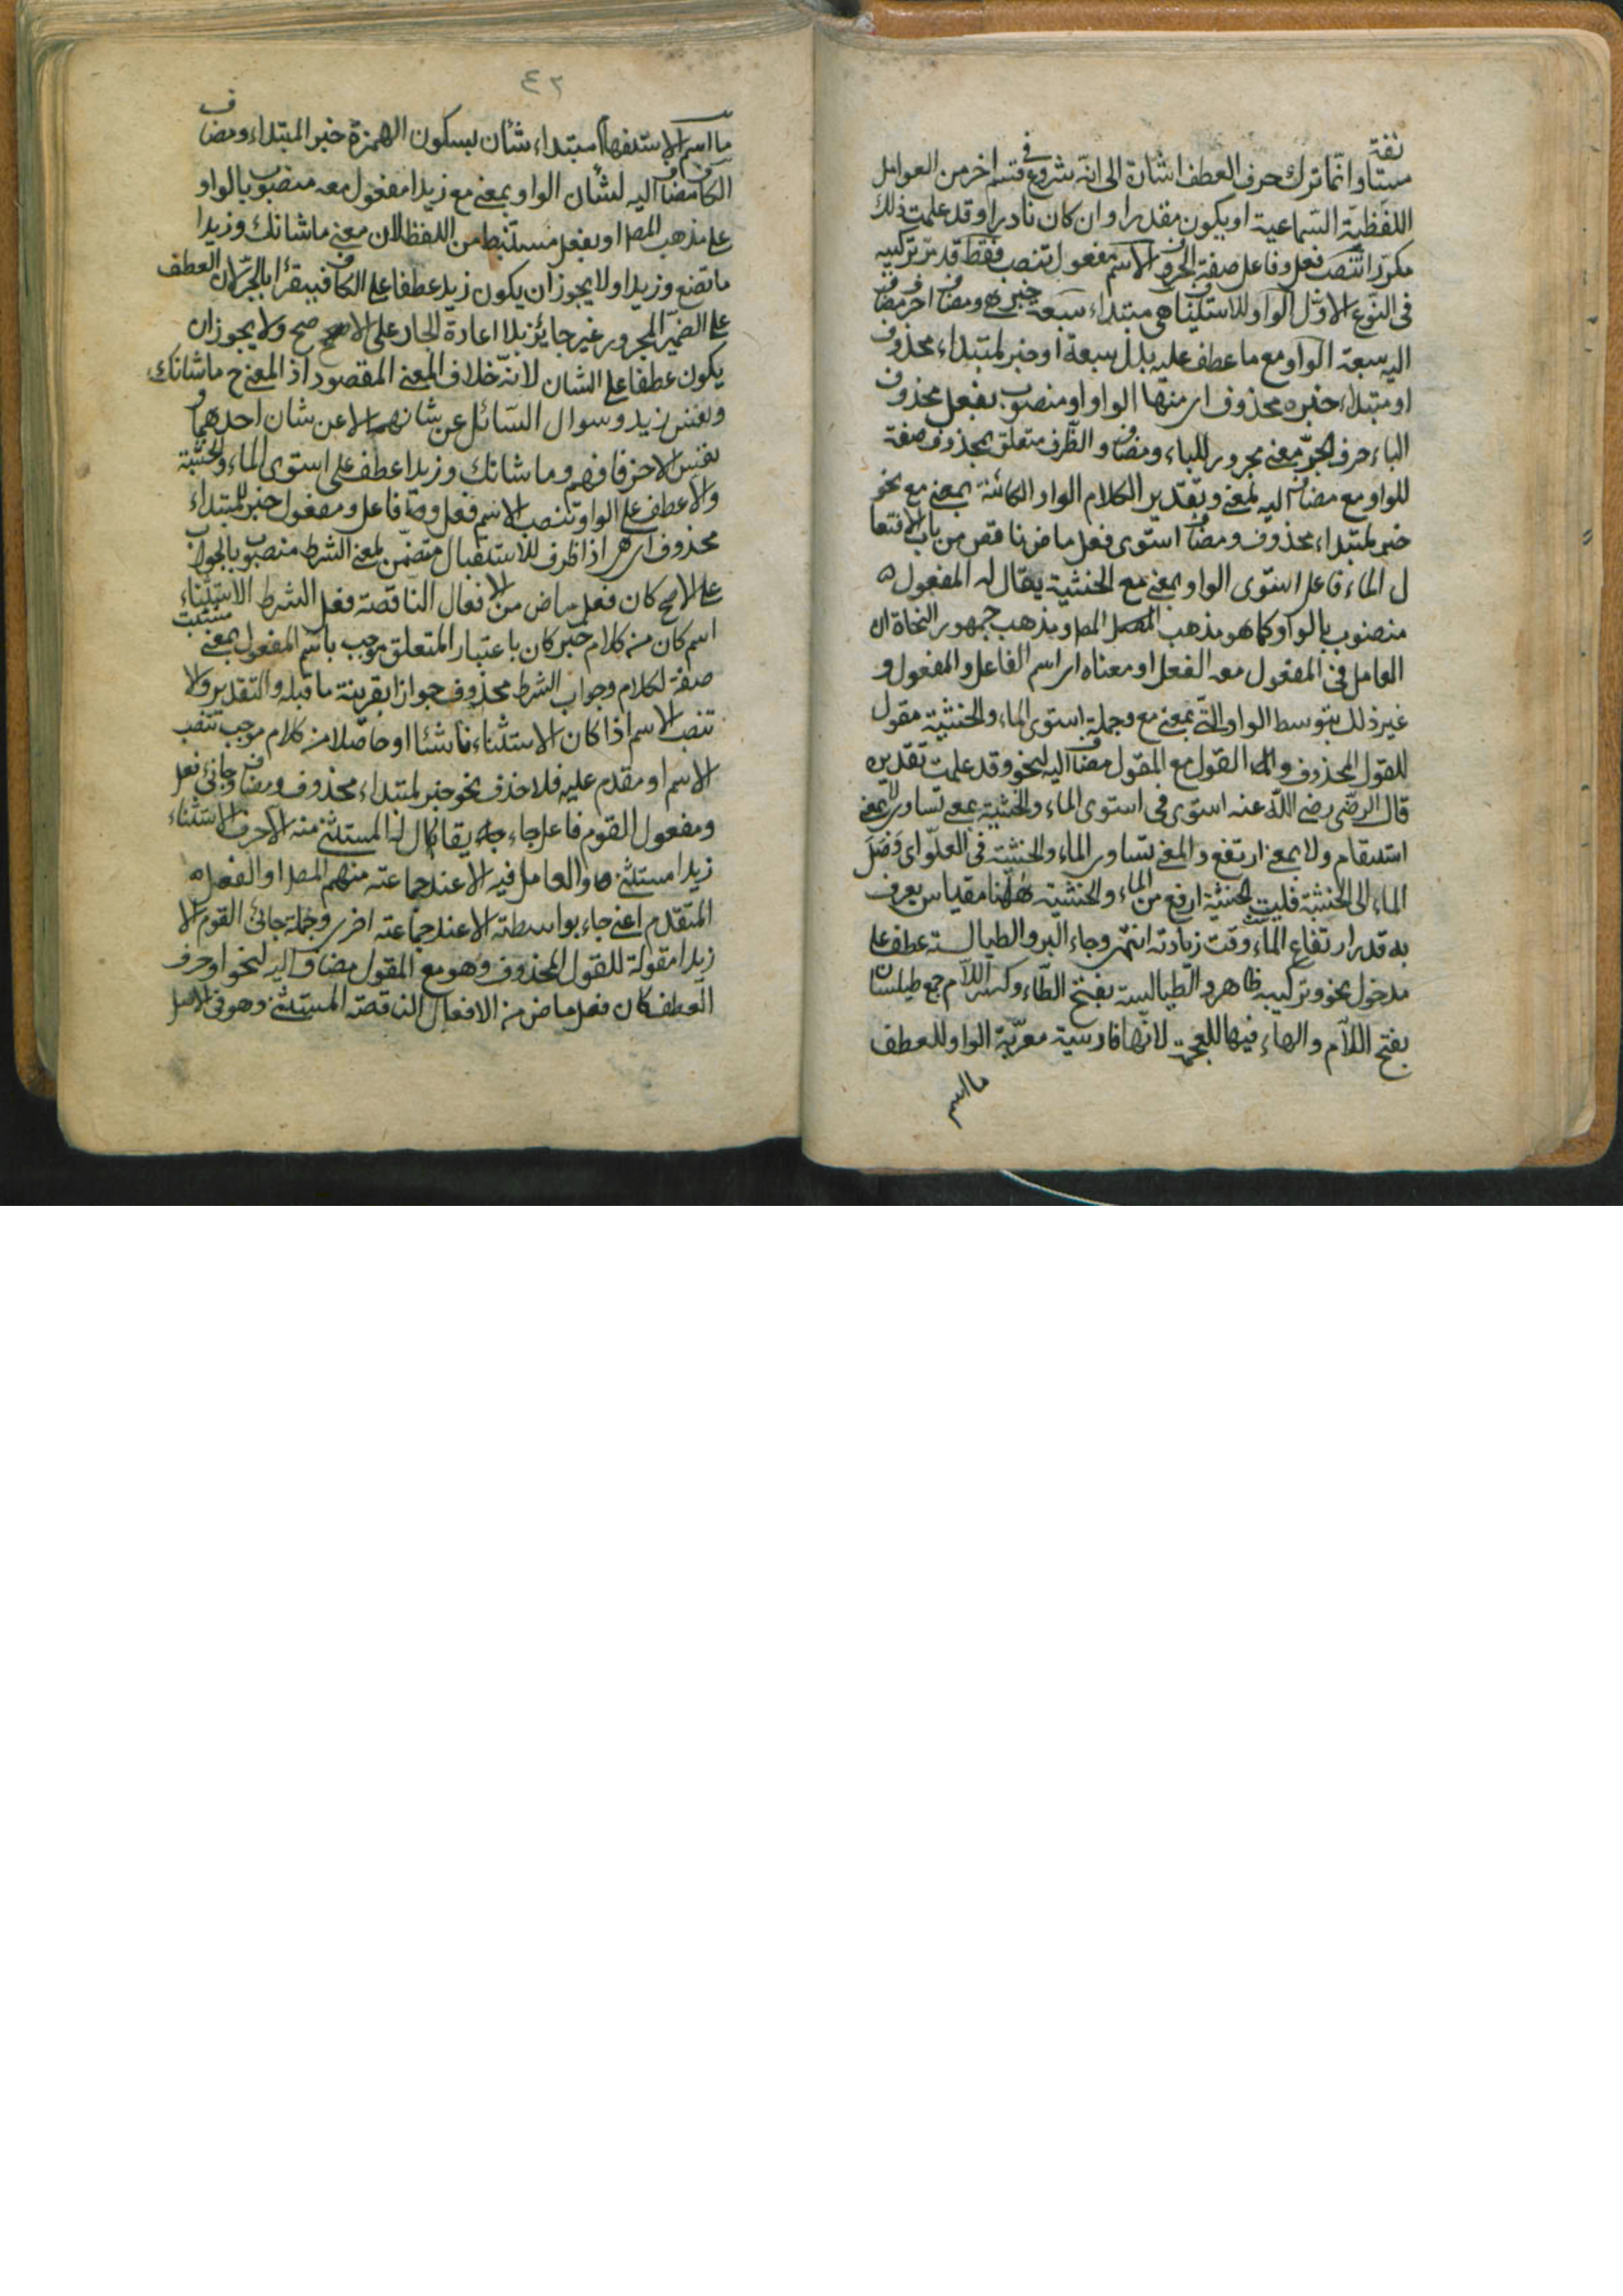 مستأنفة وانّما ترك حرف العطف اشارة الى انّه شروع في قسم اخر من العوامل
اللفظيّة السّماعية او يكون مقدرا وان كان نادرا وقد علمت ذلك
مكرّرا تنصب فعل وفاعل صفة الحروف الاسم مفعول تنصب فقط قد مرّ تركيبه
في النّوع الاوّل الواو للاستيناف هي مبتداء سبعة خبر هي ومضاف احرف مضاف
اليه سبعة الواو مع ما عطف عليه بدل سبعة او خبر لمبتداء محذوف
او مبتداء خبره محذوف اى منها الواو او منصوب بفعل محذوف
الباء حرف الجرّ معنى مجرور للباء ومضاف والظّرف متعلق بمحذوف صفة
للواو مع مضاف اليه لمعنى وتقدير الكلام الواو الكائنة بمعنى مع نحو
خبر لمبتداء محذوف ومضاف استوى فعل ماض ناقص من باب الافتعا
ل الماء فاعل استوى الواو بمعنى مع الخشبة يقال له المفعول ه
منصوب بالواو كما هو مذهب المص ومذهب جمهور النحاة ان
العامل في المفعول معه الفعل او معناه اى اسم الفاعل والمفعول و
غير ذلك بتوسط الواو الّتى بمعنى مع وجملة استوى الماء والخشبة مقول
للقول المحذوف والقول مع المقول مضاف اليه لنحو وقد علمت تقديره
قال الرضّى رضى اللّه عنه استوى في استوى الماء والخشبة بمعنى تساوى لا بمعنى
استقام ولا بمعنى ارتفع والمعنى تساوى الماء والخشبة في العلوّ اى وَصَلَ
الماء الى الخشبة فليست الخشبة ارفع من الماء والخشبة هٰهنا مقياس يعرف
به قدر ارتفاع الماء وقت زيادته انتهى وجاء البرد والطيالسة عطف على
مدخول نحو وتركيبه ظاهر والطّيالسة بفتح الطّاء وكسر اللّام جمع طيلسان
بفتح اللّام والهاء فيها للعجمة لانّها فارسية معرّبة الواو للعطف
ما اسم
٤٢
ما اسم الاستفهام مبتداء شأن بسكون الهمزة خبر المبتداء ومضاف
الكاف مضاف اليه لشأن الواو بمعنى مع زيدا مفعول معه منصوب بالواو
على مذهب المص او بفعل مستنبط من اللفظ لان معنى ما شانك وزيدا
ما تصنع وزيدا ولا يجوز ان يكون زيد عطفا على الكاف فيقرأ بالجرّ لان العطف
على الضمير المجرور غير جايز بلا اعادة الجار على الاصح ولا يجوز ان
يكون عطفا على الشان لانّه خلاف المعنى المقصود اذ المعنى ح ما شانك
ونفس زيد وسوال السّائل عن شانهما لا عن شان احدهما و
نفس الاخر فافهم وما شانك وزيدا عطف على استوى الماء والخشبة
والا عطف على الواو تنصب الاسم فعل وفاعل ومفعول خبر لمبتداء
محذوف اى هى اذا ظرف للاستقبال متضمّن لمعنى الشرط منصوب بالجواب
على الاصح كان فعل ماض من الافعال الناقصة فعل الشرط الاستثناء
اسم كان من كلام خبر كان باعتبار المتعلق موجب باسم المفعول بمعنى مثبت
صفة لكلام وجواب الشرط محذوف جوازا بقرينة ما قبله والتقدير ولا
تنصب الاسم اذا كان الاستثناء ناشئا او حاصلا من كلام موجب تنصب
الاسم او مقدم عليه فلا حذف نحو خبر لمبتداء محذوف ومضاف وجائنى فعل
ومفعول القوم فاعل جاء يقال له المستثنى منه الّا حرف الاستثناء
زيدا مستثنى والعامل فيه الا عند جماعته منهم المص او الفعل ه
المتقدم اعنى جاء بواسطة الا عند جماعته اخرى وجملة جائنى القوم الا
زيدا مقولة للقول المحذوف وهو مع المقول مضاف اليه لنحو او حرف
العطف كان فعل ماض من الافعال الناقصة المستثنى وهو في الاصل